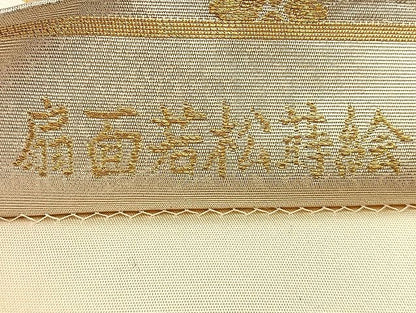 扇面若松蒔絵